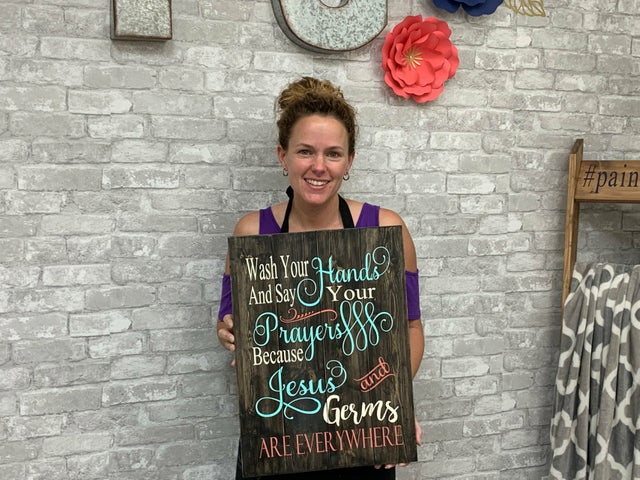 #pain
Wash Your Hands
And Say Your
Prayers
Because
Jesus and
Germs
ARE EVERYWHERE